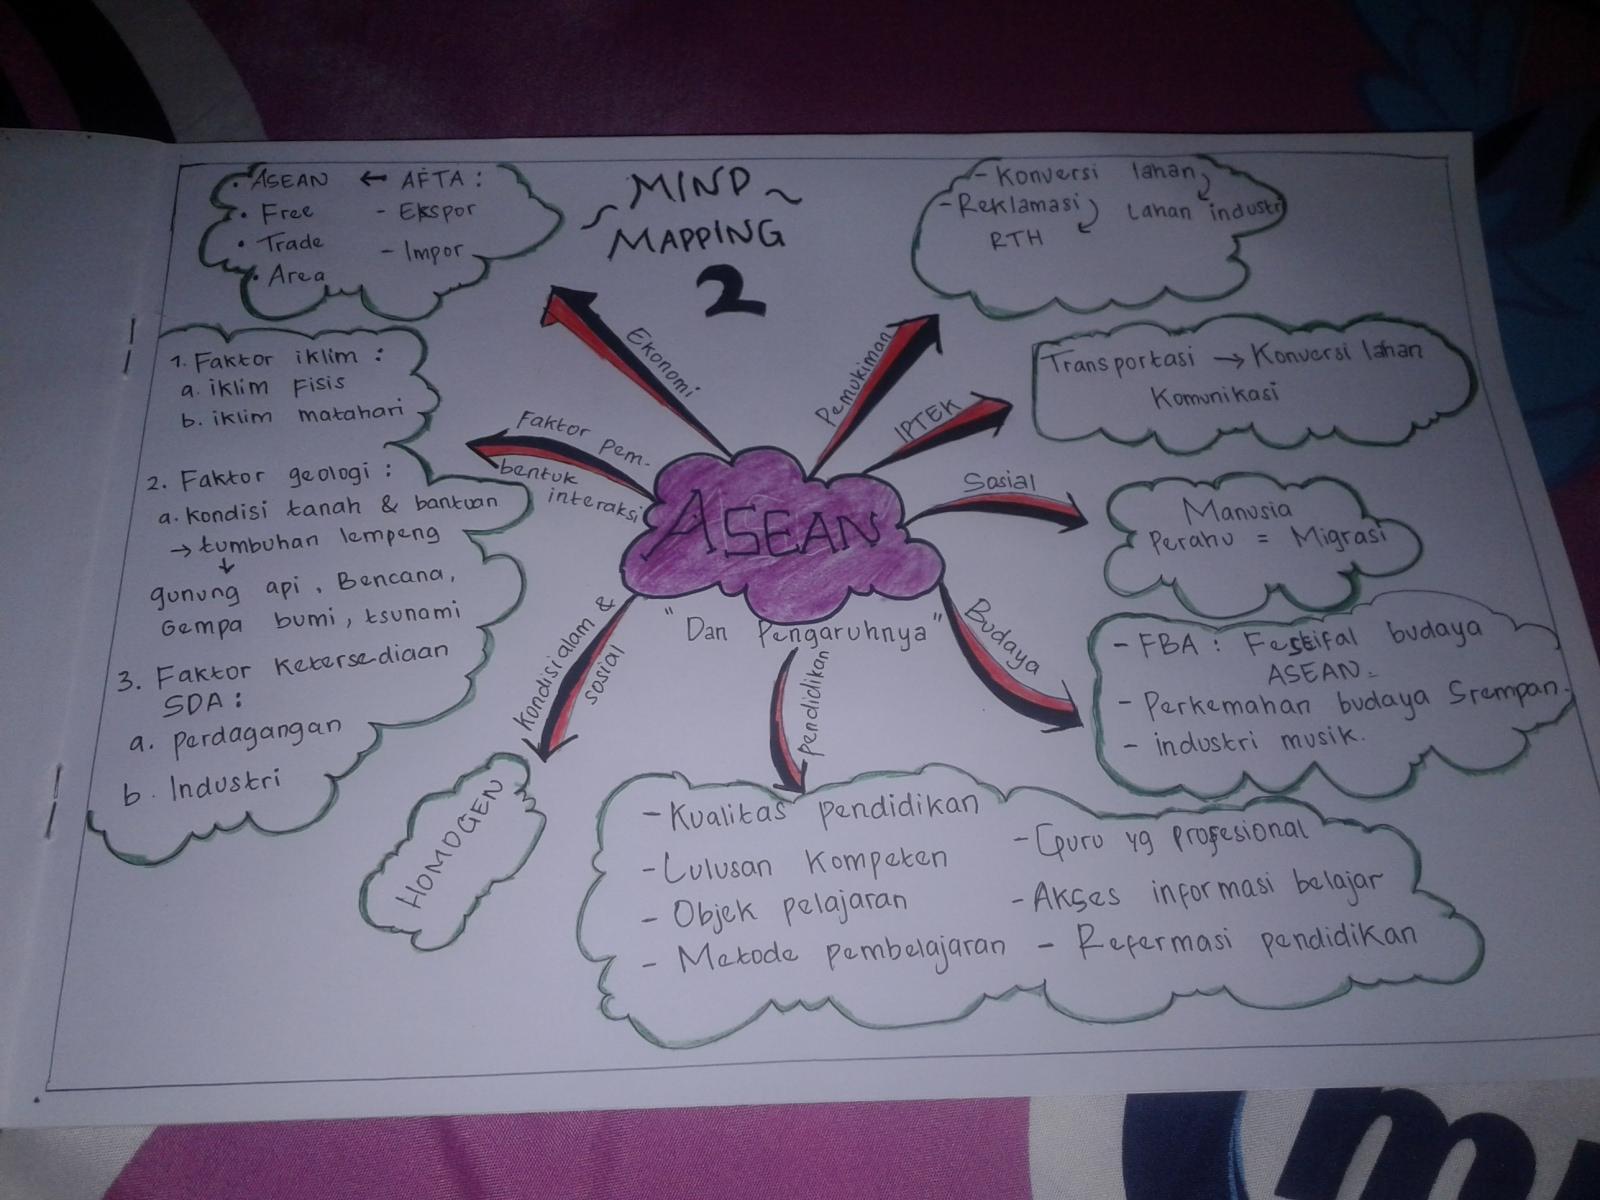 MIND
MAPPING
2
• ASEAN ← AFTA :
• Free - Ekspor
• Trade - Impor
• Area
Ekonomi
- Konversi lahan
- Reklamasi Lahan industri
RTH
Pemukiman
Transportasi → Konversi lahan
Komunikasi
IPTEK
Manusia
Perahu = Migrasi
Sosial
- FBA : Festifal budaya
ASEAN
- Perkemahan budaya Srempan.
- industri musik.
Budaya
ASEAN
"Dan Pengaruhnya"
Faktor pem-
bentuk
interaksi
1. Faktor iklim :
a. iklim Fisis
b. iklim matahari
2. Faktor geologi :
a. kondisi tanah & bantuan
→ tumbuhan lempeng
↓
gunung api, Bencana,
Gempa bumi, tsunami
3. Faktor Ketersediaan
SDA :
a. perdagangan
b. Industri
Kondisi alam &
sosial
HOMOGEN
Pendidikan
- Kualitas pendidikan
- Lulusan Kompeten
- Objek pelajaran
- Metode pembelajaran
- Guru yg profesional
- Akses informasi belajar
- Refermasi pendidikan